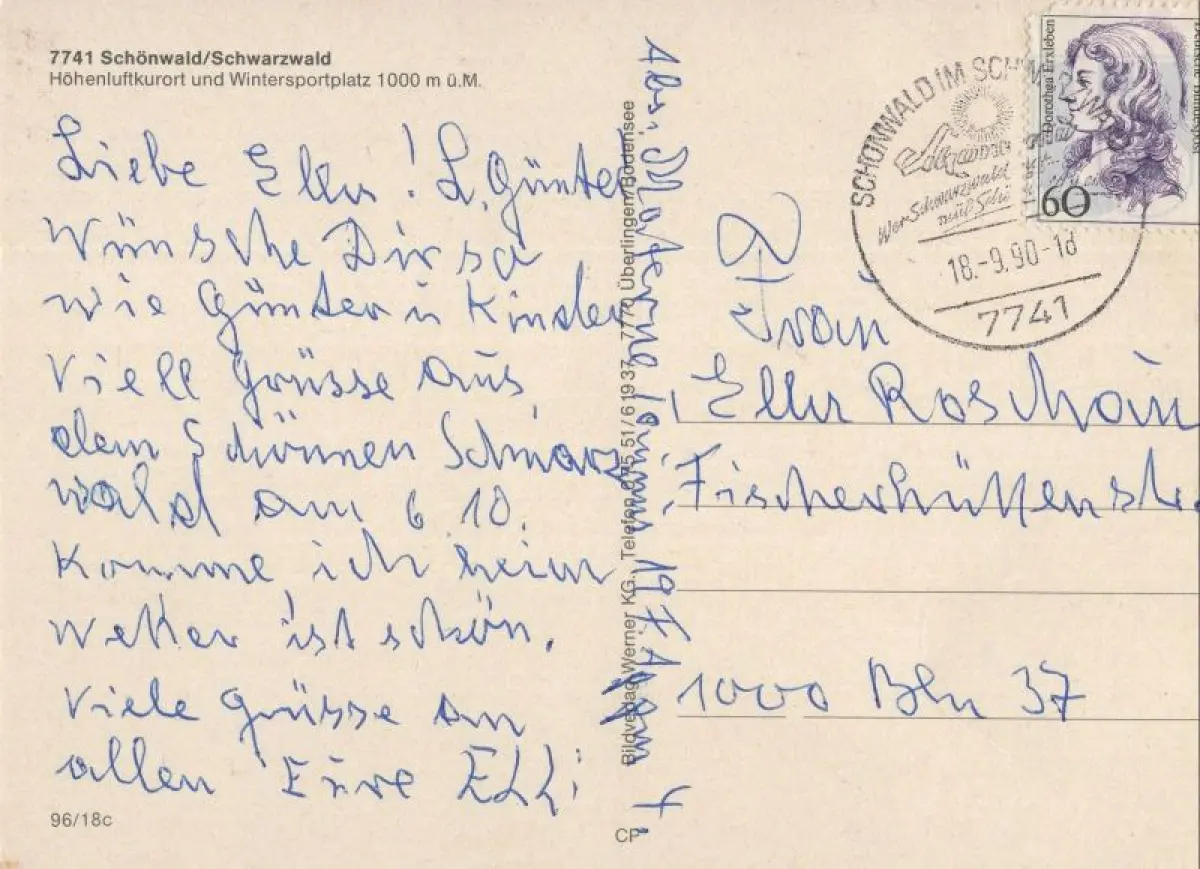 7741 Schönwald/Schwarzwald
Höhenluftkurort und Wintersportplatz 1000 m ü.M.
Liebe Ella! L. Günter
Wünsche Dir so
wie Günter u Kinder
viell Grüsse aus
dem Schönnen Schwarz
wald am 6 10.
Komme ich heim
Wetter ist schön.
Viele Grüsse an
allen Eure Elli
96/18c
Bildverlag Werner KG., Telefon 075 51/6 19 37, 7770 Überlingen/Bodensee
CP
Abs. Materne
SCHÖNWALD IM SCHWARZWALD
Wer Schwarzwald
18.-9.90-1d
7741
Dorothea Erxleben
60
Frau
Ella
Fischerhüttenstr.
1000 Bln 37